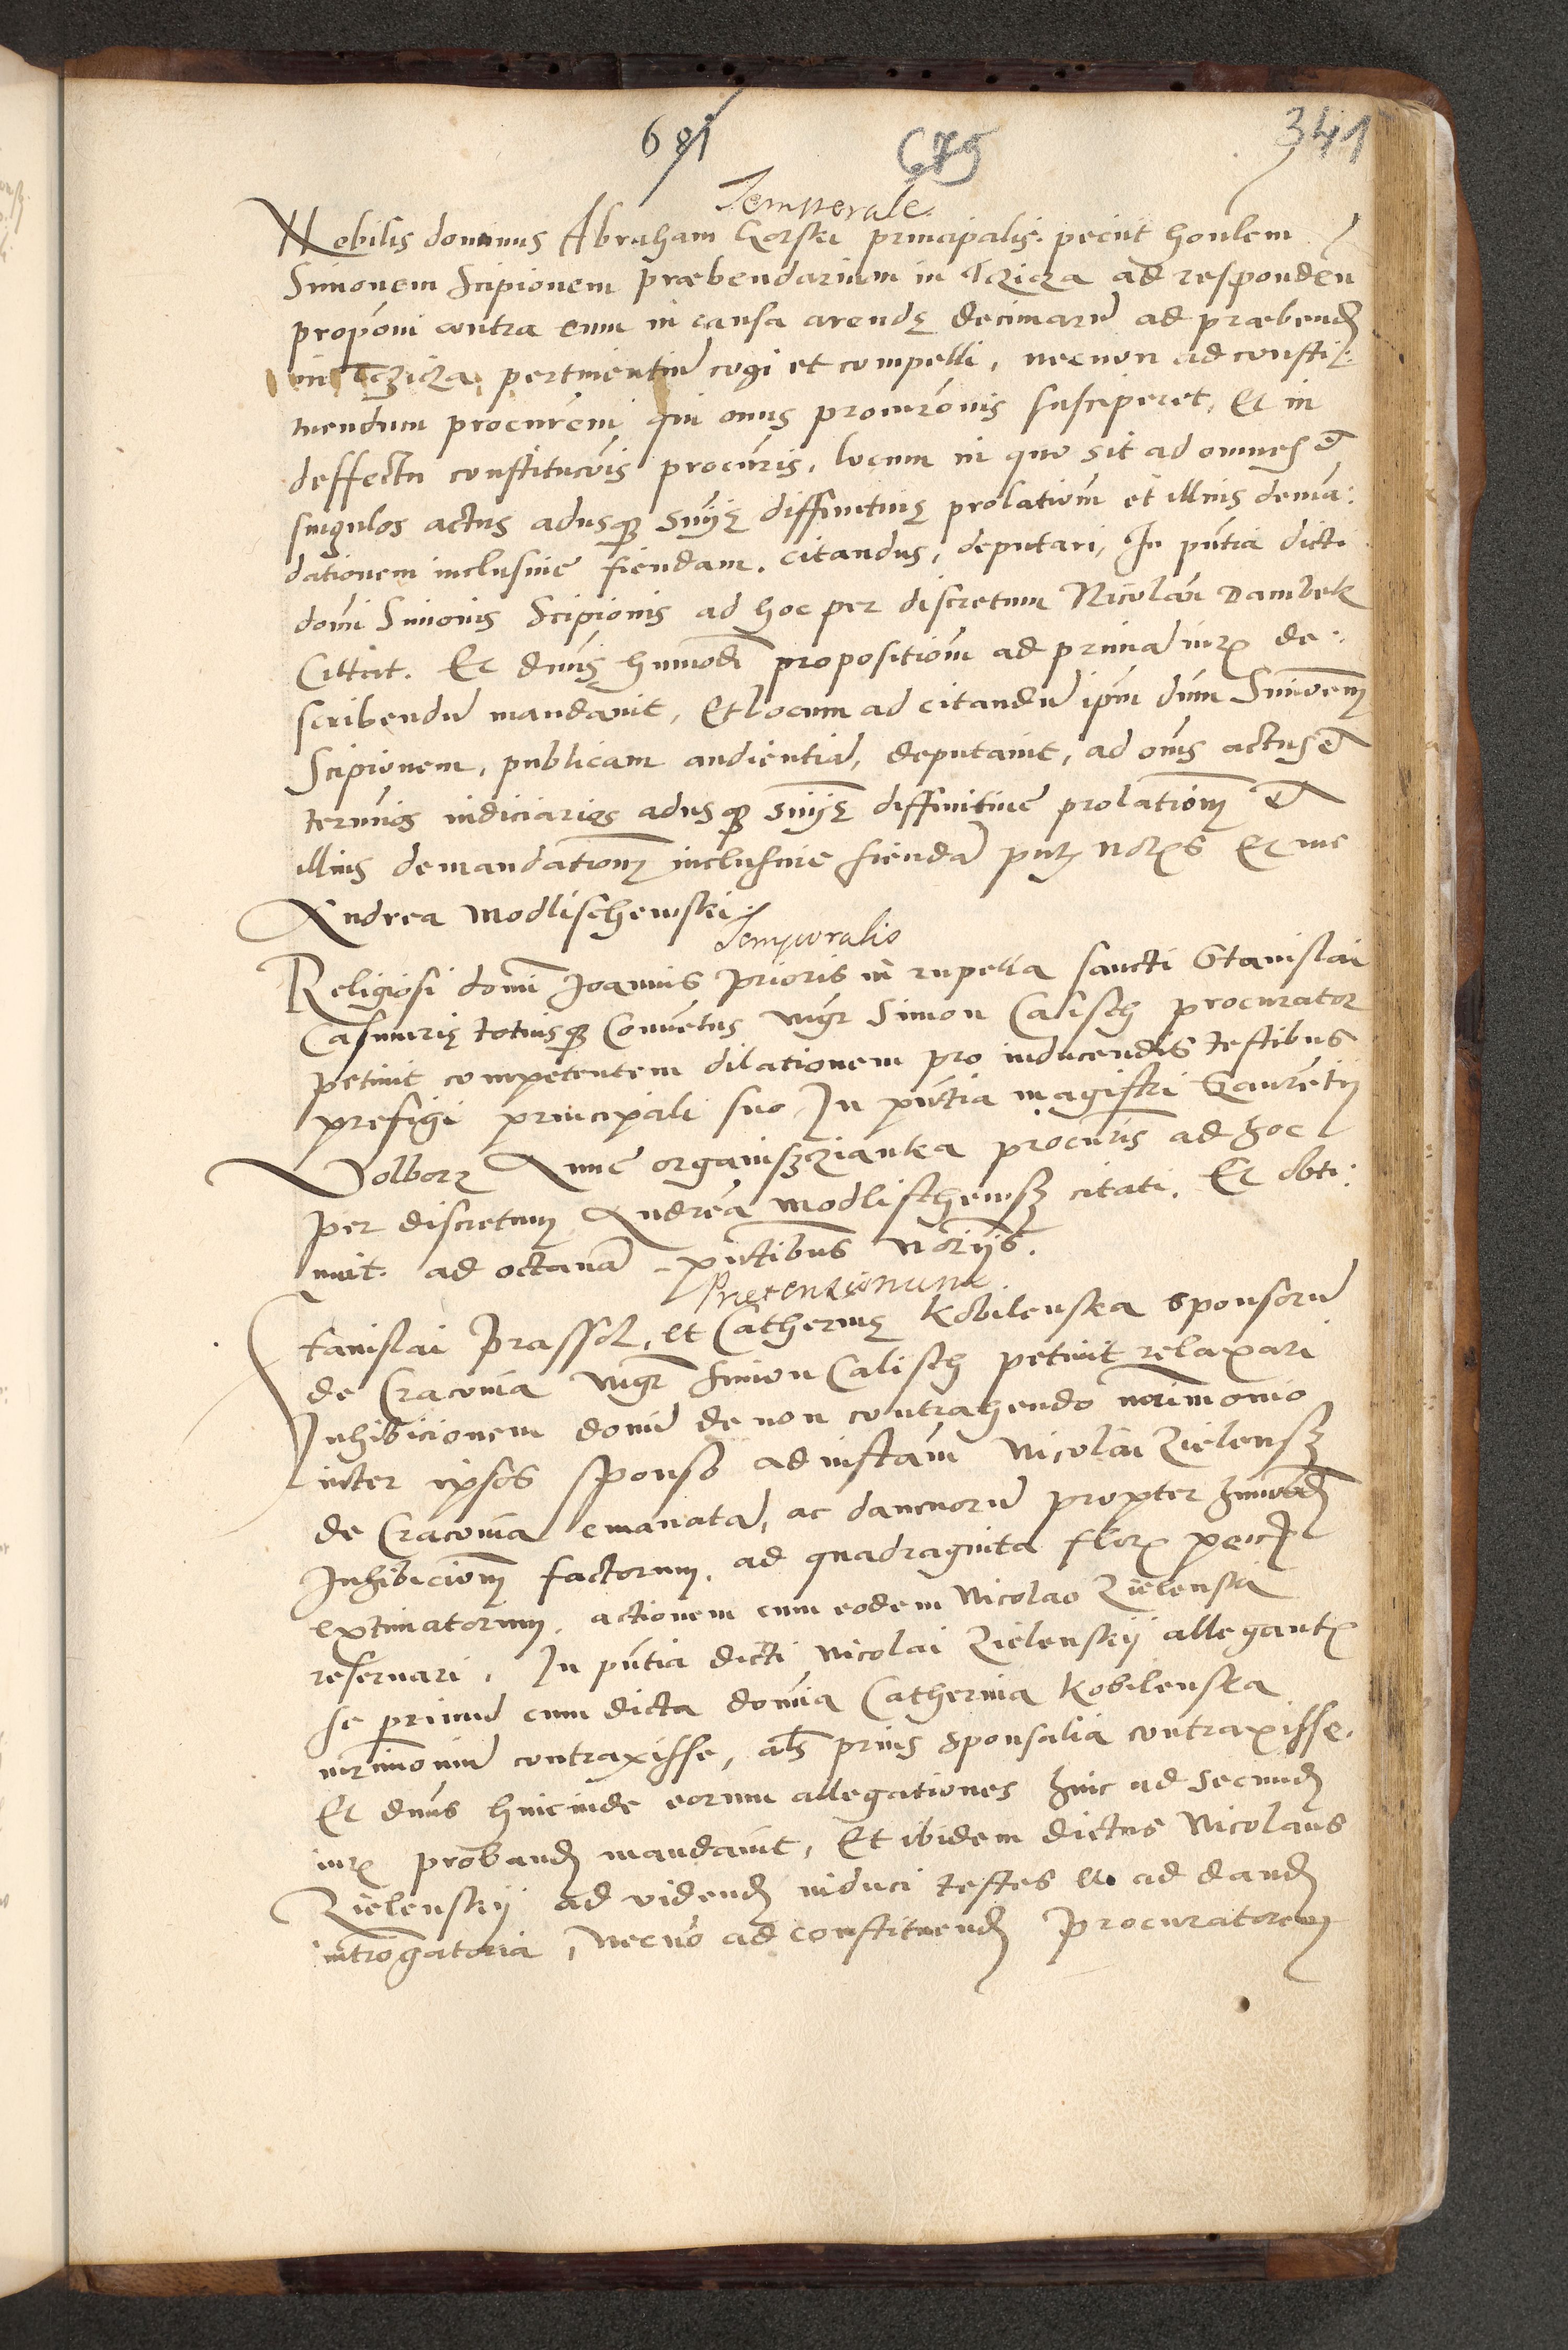 681 675 341
Temporale
Nobilis dominus Abraham Gorski principalis peciit honlem
Simonem Scipionem præbendarium in Tczicza ad responden
proponi contra eum in causa arendę decimarū ad præbend
in Tczicza pertinentiū cogi et compelli, necnon ad consti:
tuendum procurēm qui onus procurōnis susciperet, Et in
deffectu constitucōis procūris, locum in quo sit ad omnes et
singulos actus adusq̃ sniię diffinitiuę prolationm et illius deman:
dationem inclusiue fiendam. citandus, deputari, In pñtia dicti
domi Simonis Scipionis ad hoc per discretum Nicolaū Dambek
Cittat. Et dnus huiuodi propositionm ad primā iurz de:
scribendū mandauit, Et locum ad citandū ipm dūm Simonem
Scipionem, publicam audientiā, deputauit, ad oms actus et
termios iudiciarios adusq̃ sniię diffinitiue prolationm et
illius demandationm inclusiue fiendā pntz notrs Et me
Andrea Modlischewski.
Temporalis
Religiosi domī Joannis Prioris in rupella sancti Stanislai
Casimirię totiusq̃ Conuētus mgr Simon Calisch procurator
petiuit competentem dilationem pro inducendis testibus
prefigi principali suo In pñtia magistri Laurētij
Volborz Anne organiszczianka procūris ad hoc
per discretum Andreā Modlischewsz citati. Et obti:
nuit. ad octauā pñtibus notrijs.
Pretensionum
Stanislai Prassol, et Catherinę Kobilenska sponsorū
de Cracouia mgr Simon Calisch petiuit relaxari
Inhibicionem domī de non contrahendo mrimonio
inter ipsos sponsos ad instam Nicolai Zielensz
de Cracouia emanatā, ac damnorū propter huiuodi
Inhibicionm factorum, ad quadraginta florz pecu
extimatorum, actionem cum eodem Nicolao Zielenski
reseruari, In pñtia dicti Nicolai Zielenskij allegantz
se primū cum dicta domia Catherina Kobilenska
mrimoniū contraxisse, als prius sponsalia contraxisse.
Et dnus hincinde eorum allegationes hinc ad secund
iurz proband mandauit, Et ibidem dictus Nicolaus
Zielenskij ad vidend induci testes Et ad dand
introgatoria, necnō ad constituend Procuratorem